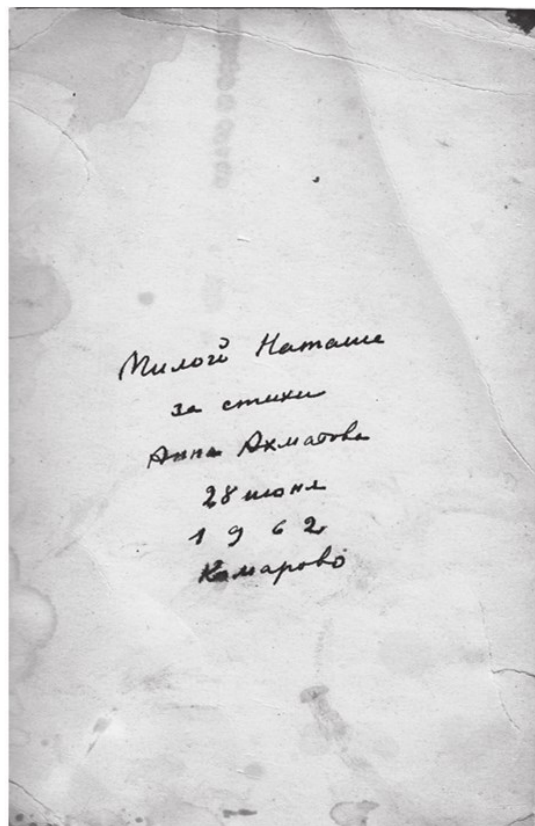 Милой Наташе
за стихи
Анна Ахматова
28 июня
1962
Комарово